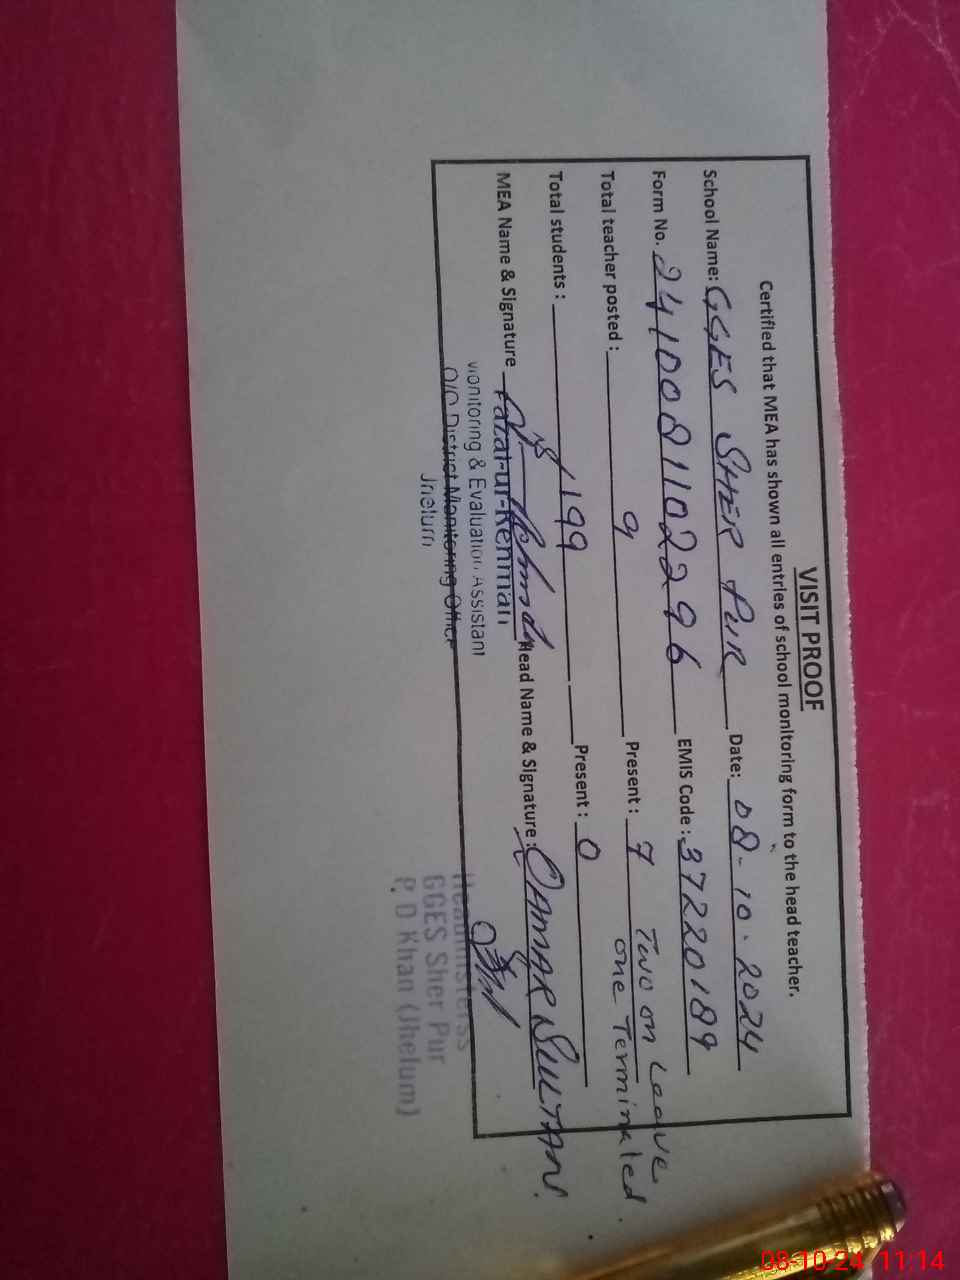 VISIT PROOF
Certified that MEA has shown all entries of school monitoring form to the head teacher.
School Name: GGES SHER PUR Date: 08-10-2024
Form No. 24100811022296 EMIS Code: 37220189
Total teacher posted: 9 Present: 7 Two on Leave
one Terminated
Total students: 199 Present: 0
MEA Name & Signature Head Name & Signature: QAMAR SULTAN.
Fazal-ur-Rehman
Monitoring & Evaluation Assistant
O/O District Monitoring Office
Jhelum
Headmisterss
GGES Sher Pur
P. D Khan (Jhelum)
08-10-24 11:14